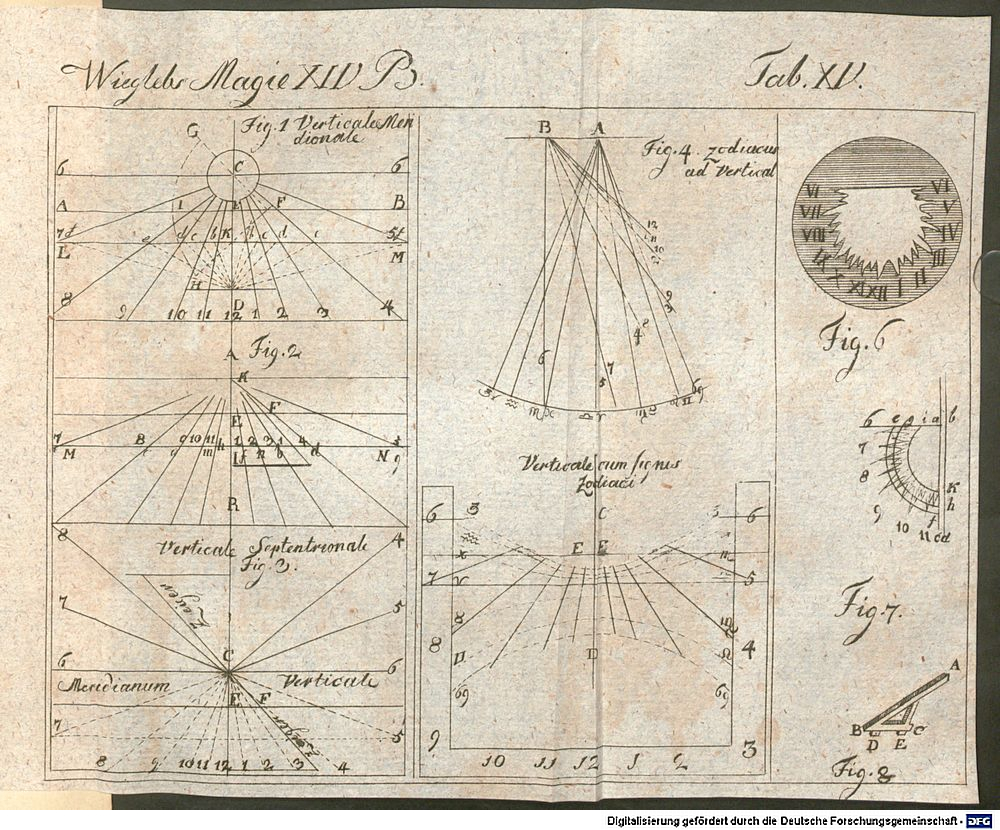 Wieglebs Magie XIV B.
Tab. XV.
Fig. 1 Verticale Meri
dionale
G
C
6 6
A I F B
7 f e d c b K b c d e 5 f
L M
H
D
8 9 10 11 12 1 2 3 4
A Fig. 2
K
F
E
7 B 9 10 11 h 1 2 3 1 4
M m f n b d N g
R
8 4
Verticale Septentrionale
Fig. 3.
Zeiger
7 5
C
6 6
Meridianum Verticale
E F
Zeiger
7 5
8 9 10 11 12 1 2 3 4
B A
Fig. 4. Zodiacus
ad Vertical
12
11
10
9
8
4
6 7
5
♒ ♏ ♎ ♈ ♊ 69
Verticale cum signis
Zodiaci
3 C 3
6 6
E E
7 5
8 D 4
69 69
9 3
10 11 12 1 2
VI VI
VII V
VIII IV
IX III
X II
XI XII I
Fig. 6
6 e g i a b
7
8
9 K
10 f h
11 c d
Fig. 7.
A
B C
D E
Fig. 8
Digitalisierung gefördert durch die Deutsche Forschungsgemeinschaft - DFG